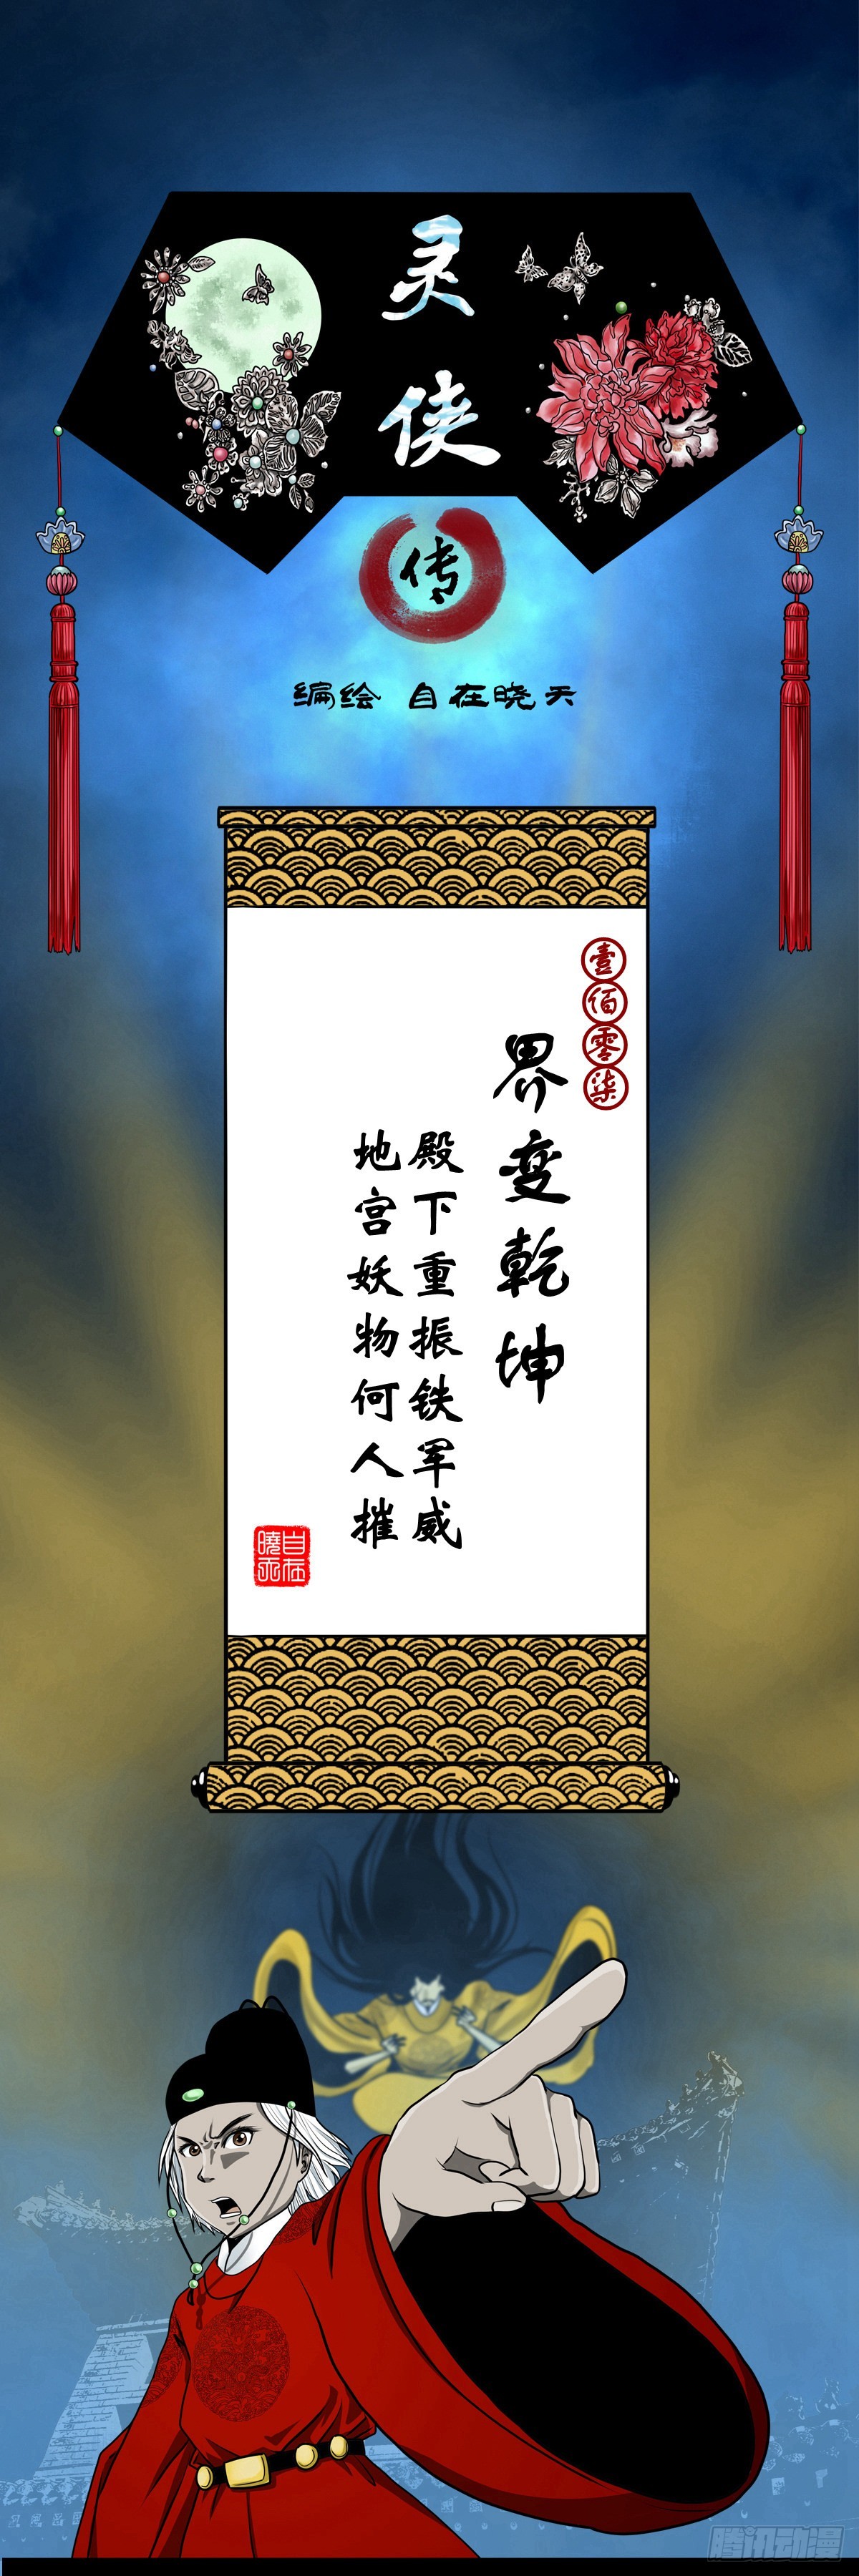 灵侠
传
编绘 自在晓天
壹佰零柒
界变乾坤
殿下重振铁军威
地宫妖物何人摧
自在曉天
腾讯动漫